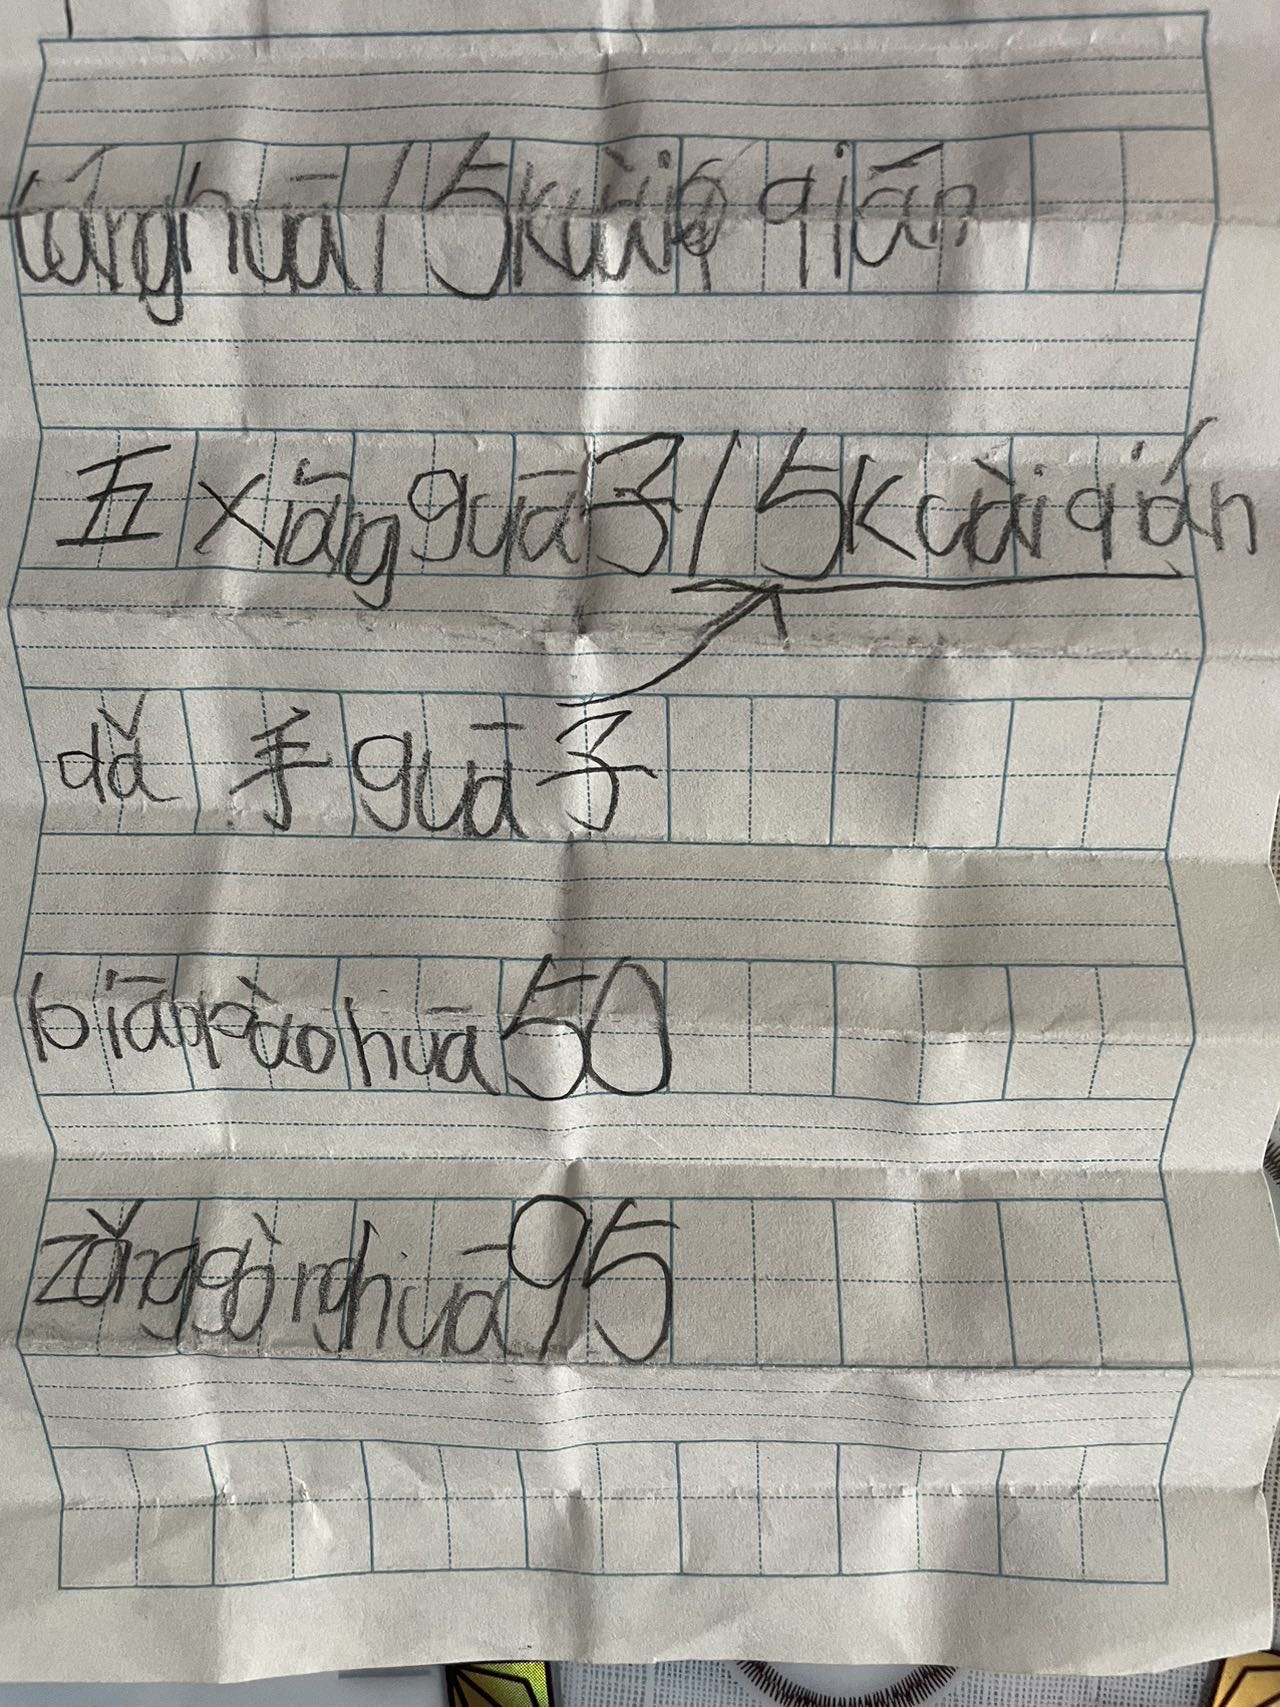 tánghuā15kuài qián
五xiāngguā子15kuàiqián
dǎ手guā子
biānpàohuā50
zǒnggònghuā95